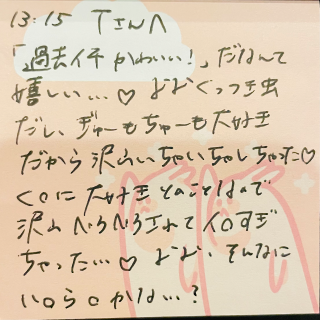 13:15 Tさんへ
「過去イチかわいい!」だなんて
嬉しい…♡ なな くっつき虫
だし、ぎゅーもちゅーも大好き
だから沢山いちゃいちゃしちゃった♡
く○に大好きとのことなので
沢山ぺろぺろされてイ○すぎ
ちゃった…♡ なな、そんなに
い○ら○かな…?